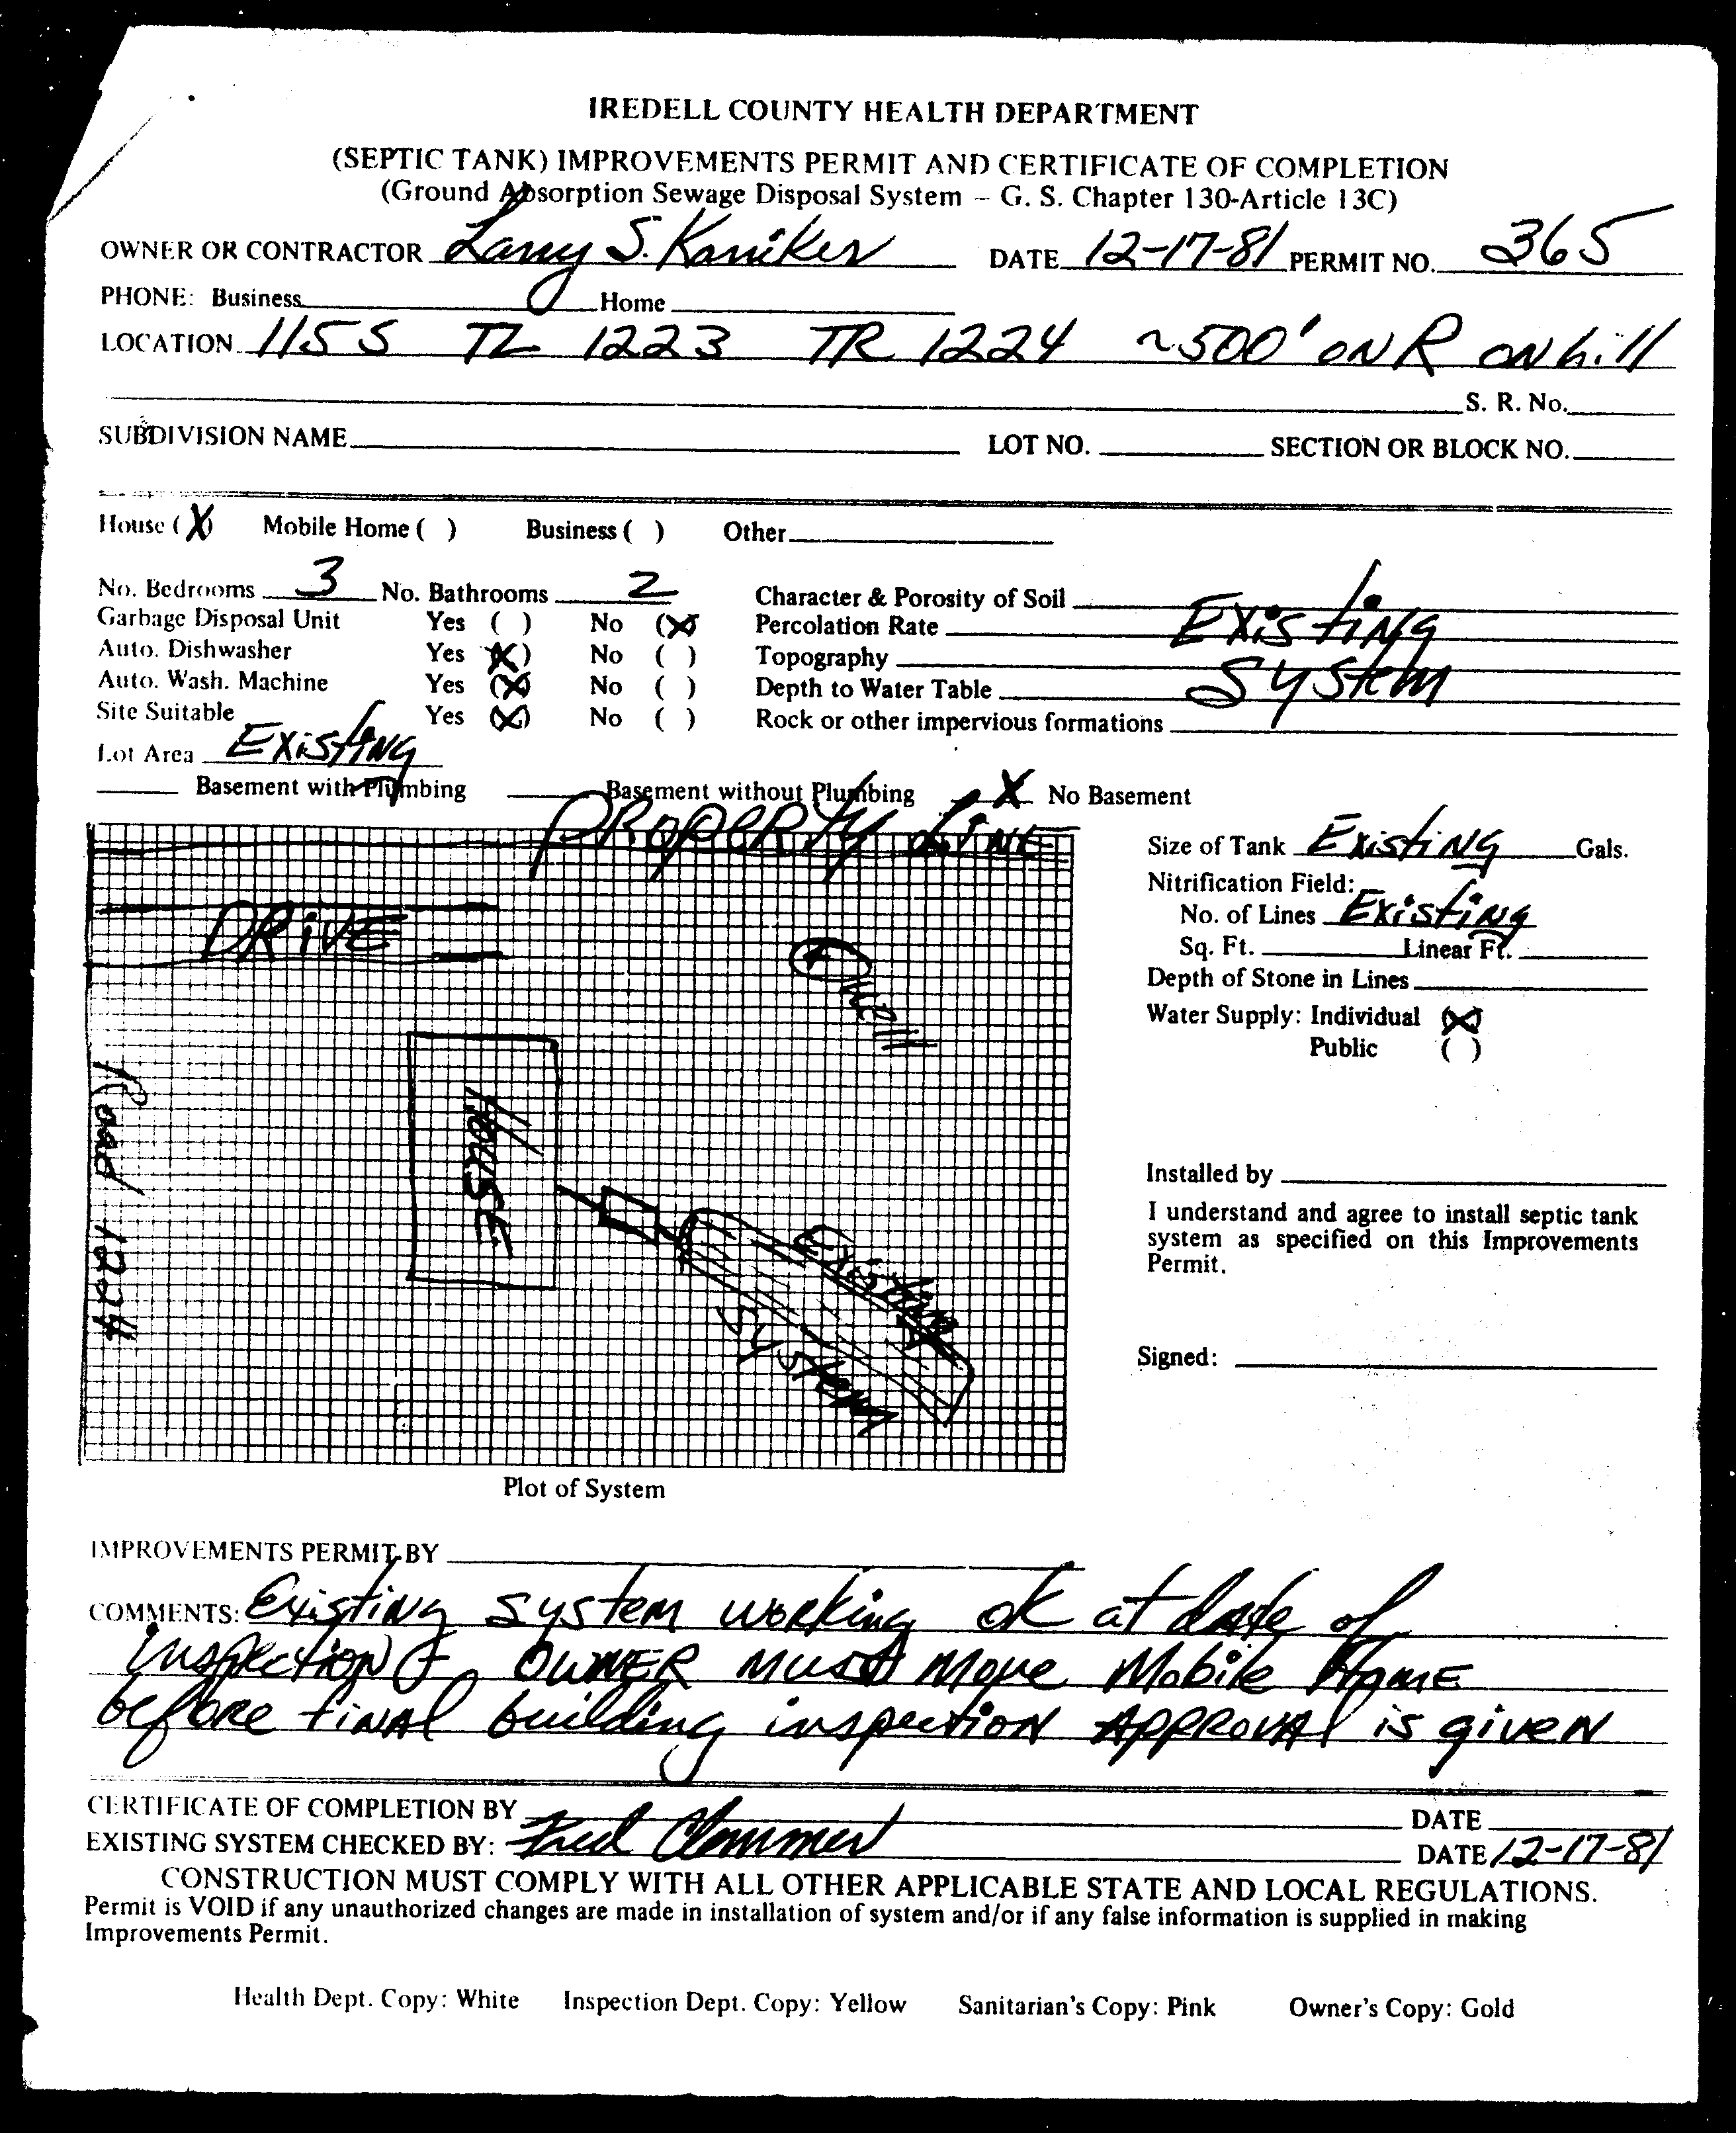 IREDELL COUNTY HEALTH DEPARTMENT
(SEPTIC TANK) IMPROVEMENTS PERMIT AND CERTIFICATE OF COMPLETION
(Ground Absorption Sewage Disposal System – G. S. Chapter 130-Article 13C)
OWNER OR CONTRACTOR Larry S. Kaniker DATE 12-17-81 PERMIT NO. 365
PHONE: Business Home
LOCATION 115 S TL 1223 TR 1224 ~500' ON R ON hill
S. R. No.
SUBDIVISION NAME LOT NO. SECTION OR BLOCK NO.
House (X) Mobile Home ( ) Business ( ) Other
No. Bedrooms 3 No. Bathrooms 2 Character & Porosity of Soil
Garbage Disposal Unit Yes ( ) No (X) Percolation Rate Existing
Auto. Dishwasher Yes (X) No ( ) Topography
Auto. Wash. Machine Yes (X) No ( ) Depth to Water Table System
Site Suitable Yes (X) No ( ) Rock or other impervious formations
Lot Area Existing
Basement with Plumbing Basement without Plumbing X No Basement
PROPERTY LINE
DRIVE
Well
HOUSE
Road 1224
Existing
System
Plot of System
Size of Tank Existing Gals.
Nitrification Field:
No. of Lines Existing
Sq. Ft. Linear Ft.
Depth of Stone in Lines
Water Supply: Individual (X)
Public ( )
Installed by
I understand and agree to install septic tank
system as specified on this Improvements
Permit.
Signed:
IMPROVEMENTS PERMIT BY
COMMENTS: Existing system working ok at date of
inspection OWNER must Move Mobile Home
before final building inspection APPROVAL is given
CERTIFICATE OF COMPLETION BY DATE
EXISTING SYSTEM CHECKED BY: Fred Clemmer DATE 12-17-81
CONSTRUCTION MUST COMPLY WITH ALL OTHER APPLICABLE STATE AND LOCAL REGULATIONS.
Permit is VOID if any unauthorized changes are made in installation of system and/or if any false information is supplied in making
Improvements Permit.
Health Dept. Copy: White Inspection Dept. Copy: Yellow Sanitarian's Copy: Pink Owner's Copy: Gold